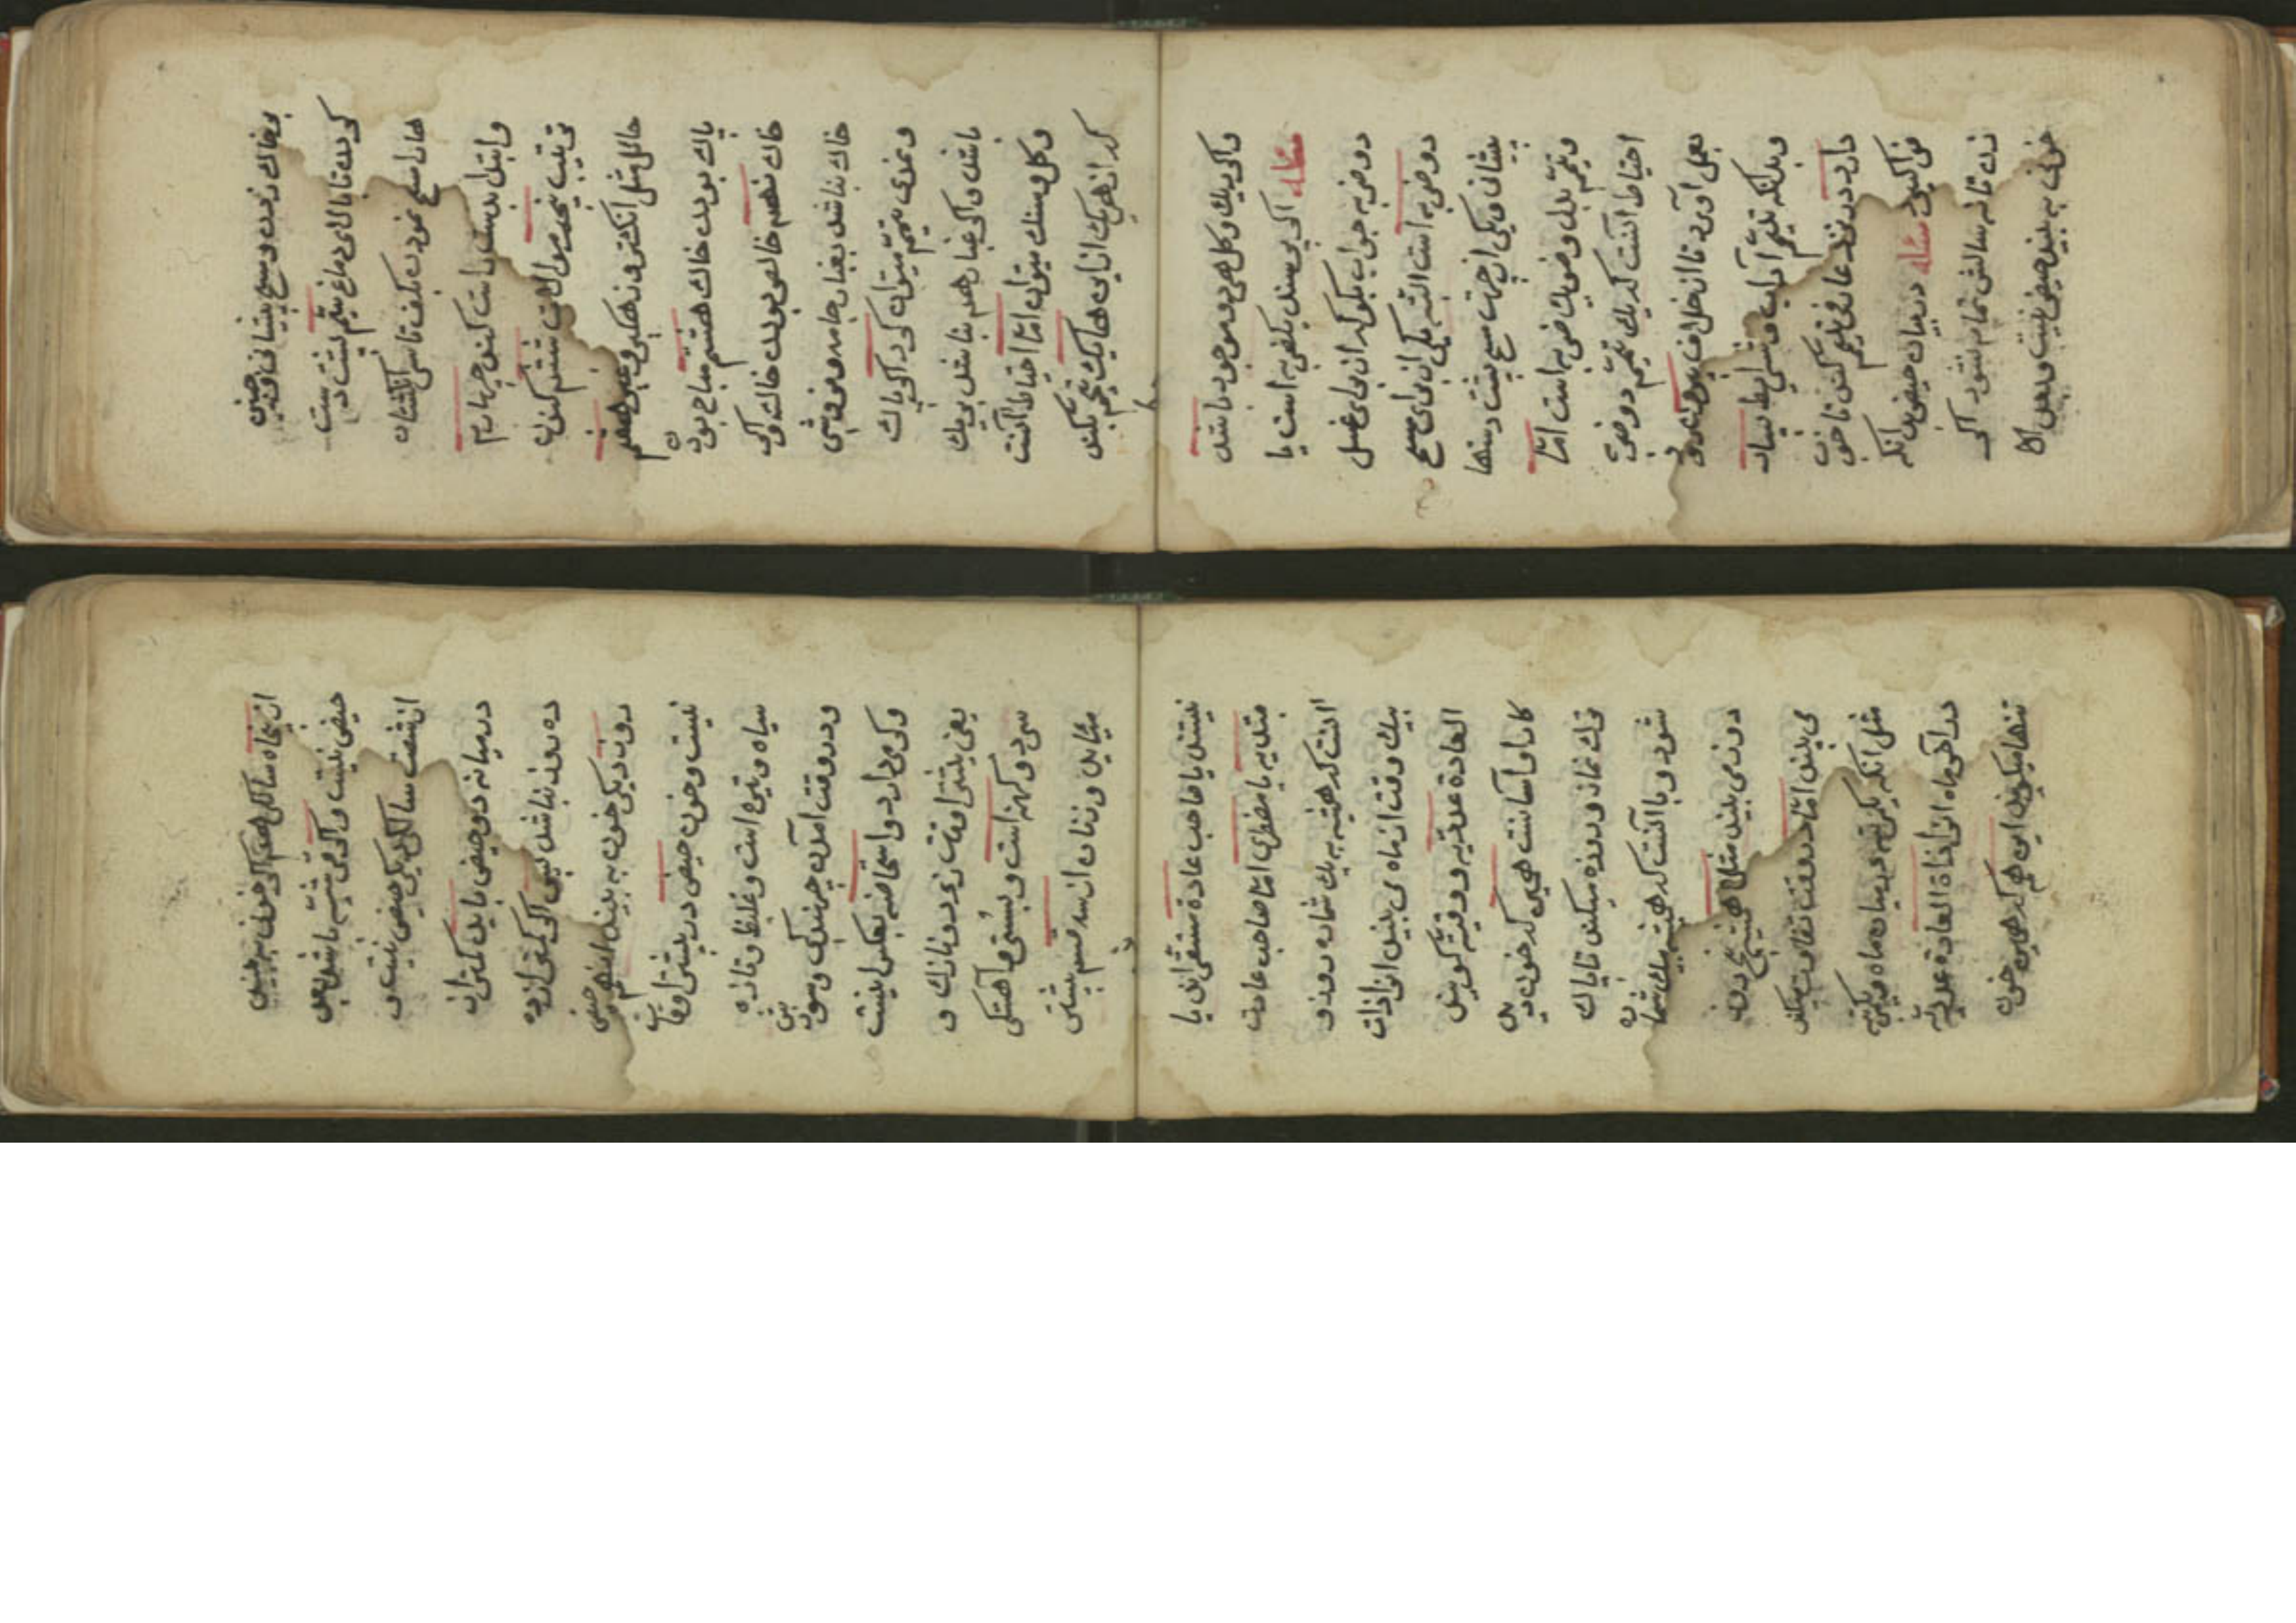 بر خاک زدن و مسح پیشانی و دو جبین
کردن تا بالای دماغ سیّم پشت دست
ها را مسح نمودن بکف تا سر انگشتان
و ابتدا بدست راست کردن چهارم
ترتیب پنجم موالات ششم کندن
حائل مثل انکشتر و زهکیر و غیره هفتم
پاک بودن خاک هشتم مباح بودن
خاک نهم خالص بودن خاک و اکر
خاک نباشد بغبار جامه و فرش
و نمدی تیمّم میتوان کرد اکر پاک
باشد و اکر غبار هم نباشد بریک
و کل و سنک میتوان امّا احتیاط آنست
که از هریک از اینها یک تیمّم بکند
و اکر ریک و کل هر دو موجود باشد
مسئله اکر پرسند یکضربه است یا
دو ضربه جواب بکو که از برای غسل
دو ضربه است البتّه یکی از برای مسح
پیشانی و یکی از جهت مسح پشت دستها
و تیمّم بدل وضو یک ضربه است امّا
احتیاط انست که یک تیمّم دو ضربه
بعمل آورد تا از خلاف بیرون رود
و بدانکه تیمّم آداب و شرایط بسیار
دارد در نزد عارفی تیمّم کند تا خوب
فرا کیرد مسئله در بیان حیض بدانکه
زن تا نه سالش تمام نشود اکر
خونی به بیند حیض نیست و بعد از
از پنجاه سالکی هم اکر خون به بیند
حیض نیست و اکر قرشیّه باشد بعد
از شصت سالکی دیکر حیض نیست و
در میانه دو حیض باید کمتر از
ده روز نباشد پس اکر کمتر از ده
روز دیکر خون به بیند انهم حیض
نیست و خون حیض در بیشتر اوقات
سیاه و تیره است و غلیظ و تازه
و در وقت امدن جهندکی و سوزش
و کرمی دارد و استحاضه بعکس اینست
یعنی بیشتر اوقات زرد و نازک و
سرد و کهنه است و بسستی و آهستکی
میآید و زنان از سه قسم بیشتر
نیستند یا صاحب عادة مستقر اند یا
مبتدیه یا مضطربه امّا صاحب عادت
انست که همیشه به یک شماره روز و
بیک وقت از ماه می بیند انرا ذات
العادة عددیّه و وقتیّه کویند
کار او آسانست همین که خون دید
ترک نماز و روزه میکند تا پاک
شود و یا آنست که همیشه بیک شماره
روز می بیند مثلا همیشه پنج روز
می بیند امّا در وقت تفاوت میکند
مثل انکه یکمرتبه در میان ماه و یکمرتبه
در آخر ماه انرا ذاة العادة عددیّه
تنها میکویند این هم که همین خون